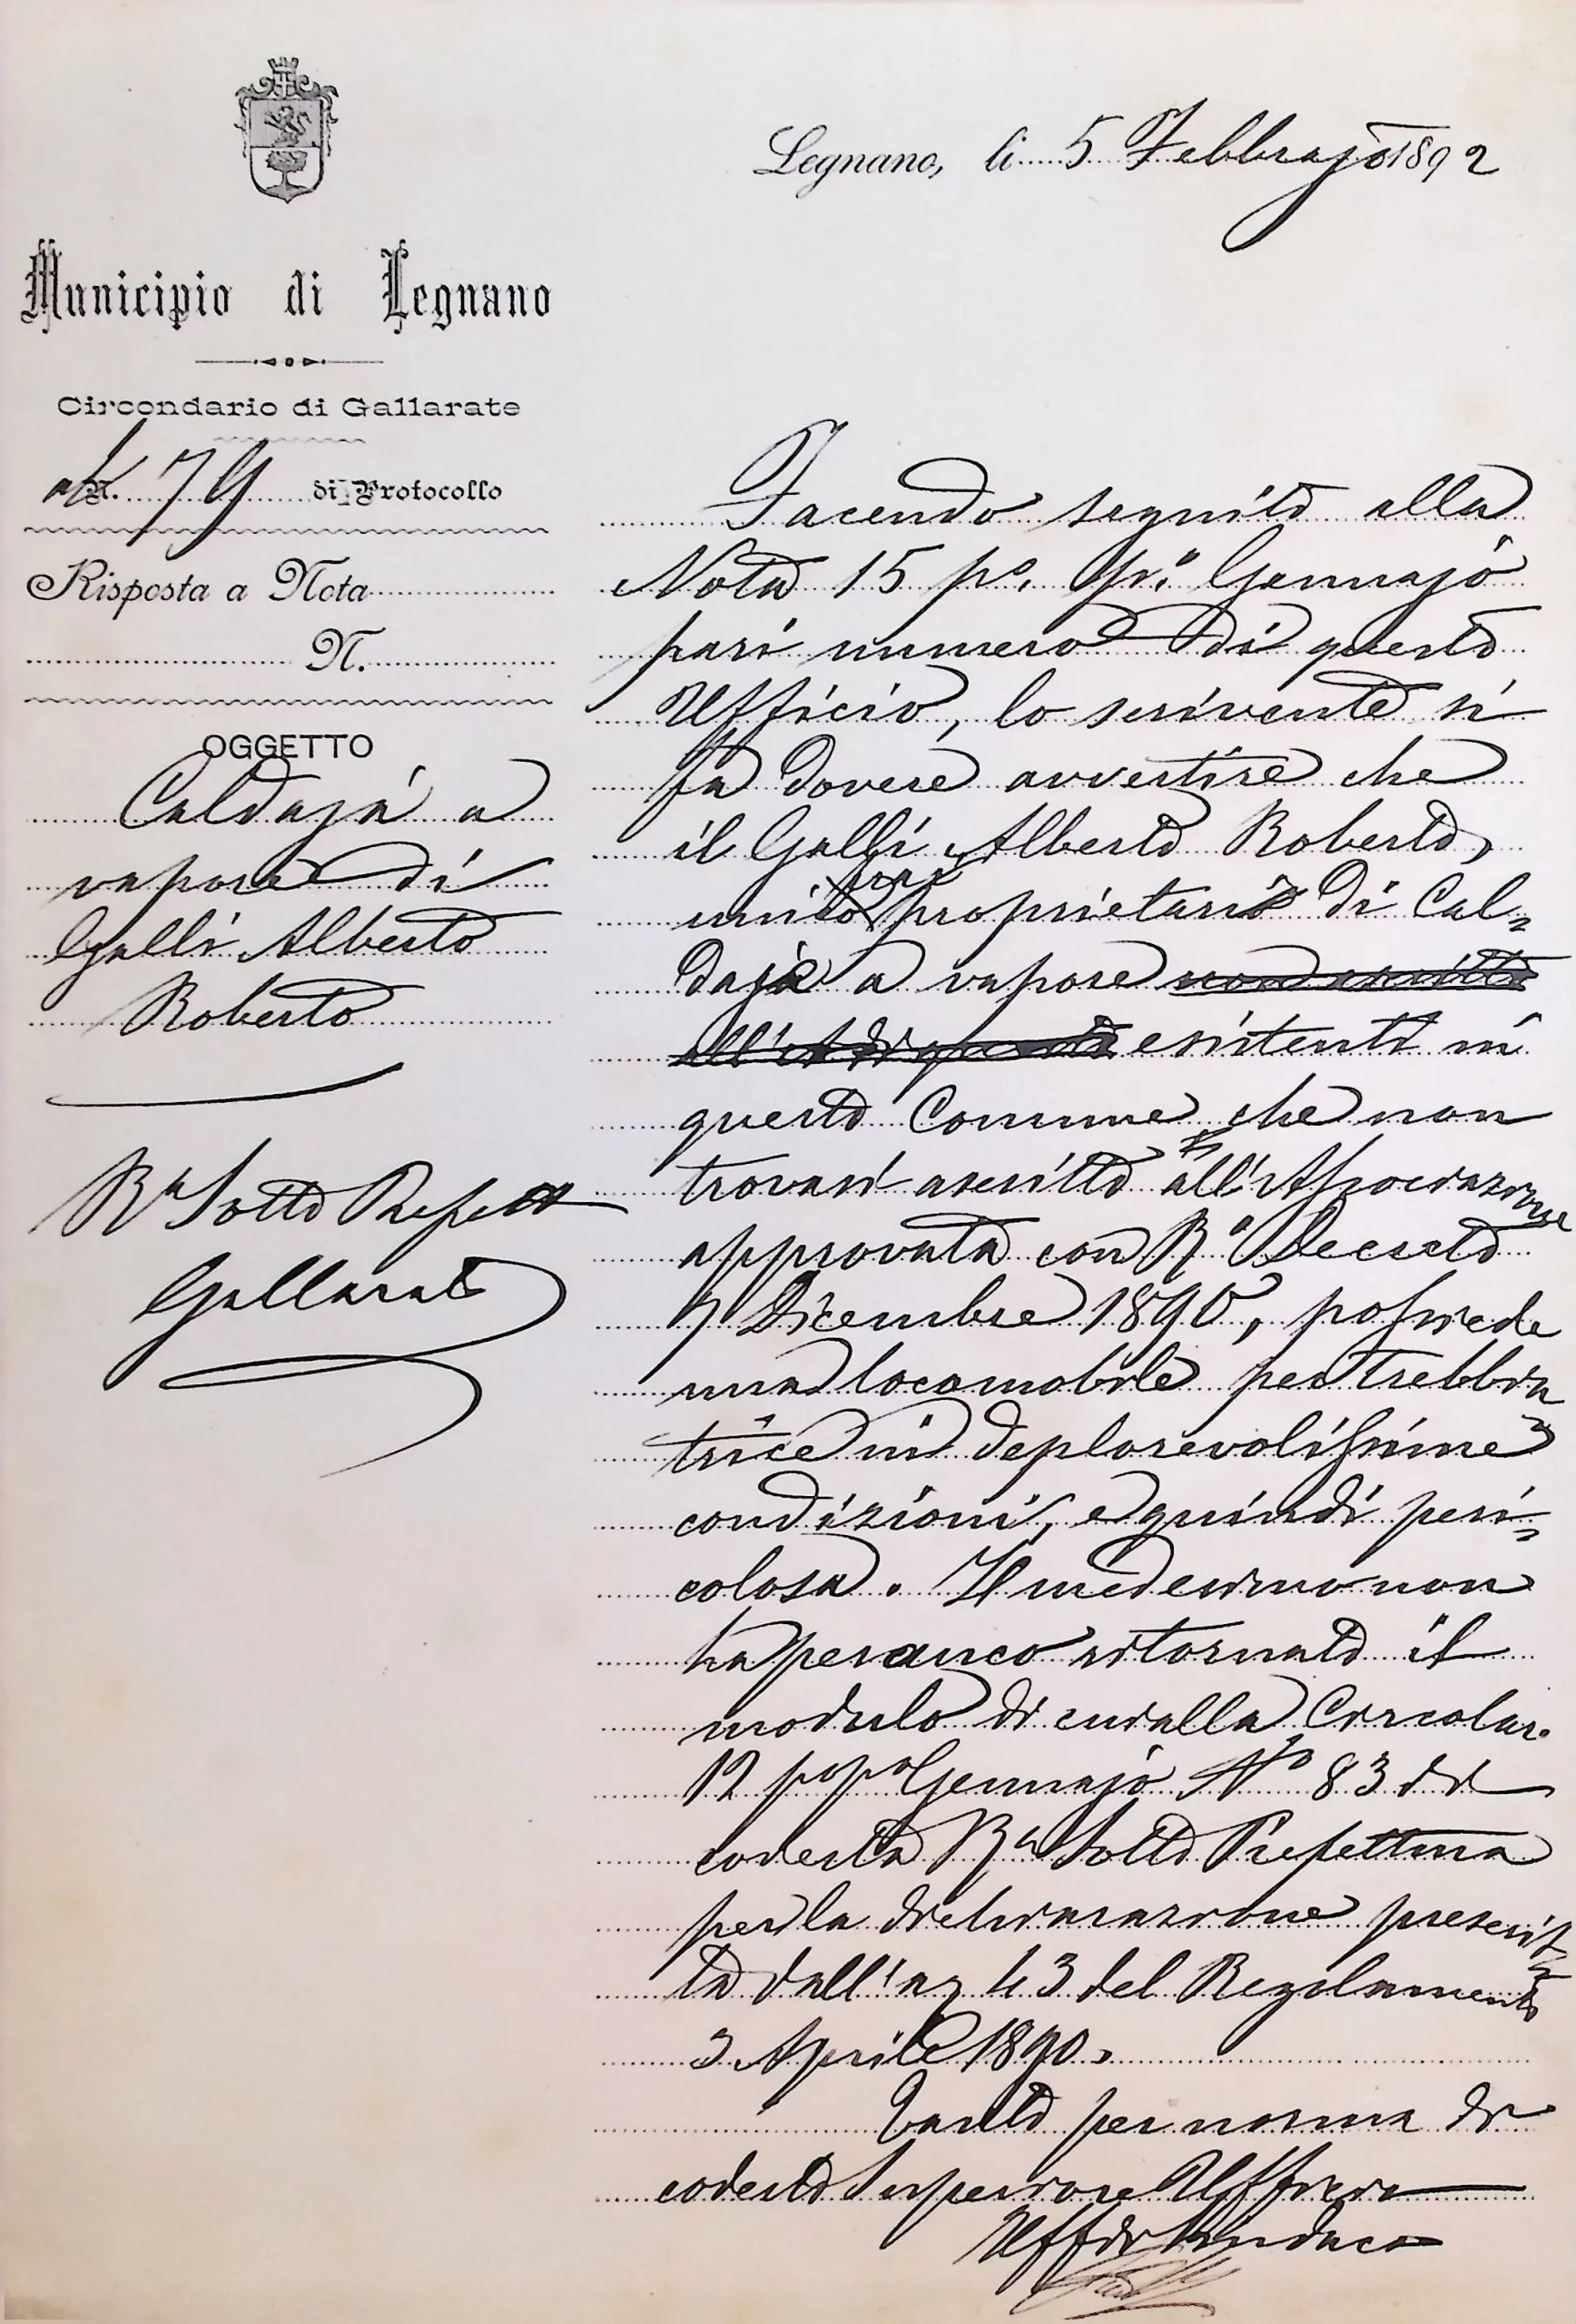 Legnano, li 5 Febbrajo 1892
Municipio di Legnano
Circondario di Gallarate
N. 79 di Protocollo
Risposta a Nota
N.
OGGETTO
Caldaja a
vapore di
Galli Alberto
Roberto
Ra Sotto Prefett
Gallarate
Facendo seguito alla
Nota 15 po. po. Gennajo
pari numero di questo
Ufficio, lo scrivente si
fa dovere avvertire che
il Galli Alberto Roberto,
unico fra i proprietari di Cal=
daja a vapore non ascritto
esistenti in
questo Comune che non
trovasi ascritto all'Associazione
approvata con R.o Decreto
7 Dicembre 1890, possiede
una locomobile per trebbia
trice in deplorevolissime
condizioni, e quindi peri=
colosa. Il medesimo non
ha peranco ritornato il
modulo di cui alla Circolar.
12 po po Gennajo No 83 di
codesta Ra Sotto Prefettura
per la dichiarazione prescrit=
ta dall'ar 43 del Regolamento
3 Aprile 1890.
Tanto per norma di
codesto Superiore Ufficio
Uff di Sindaco